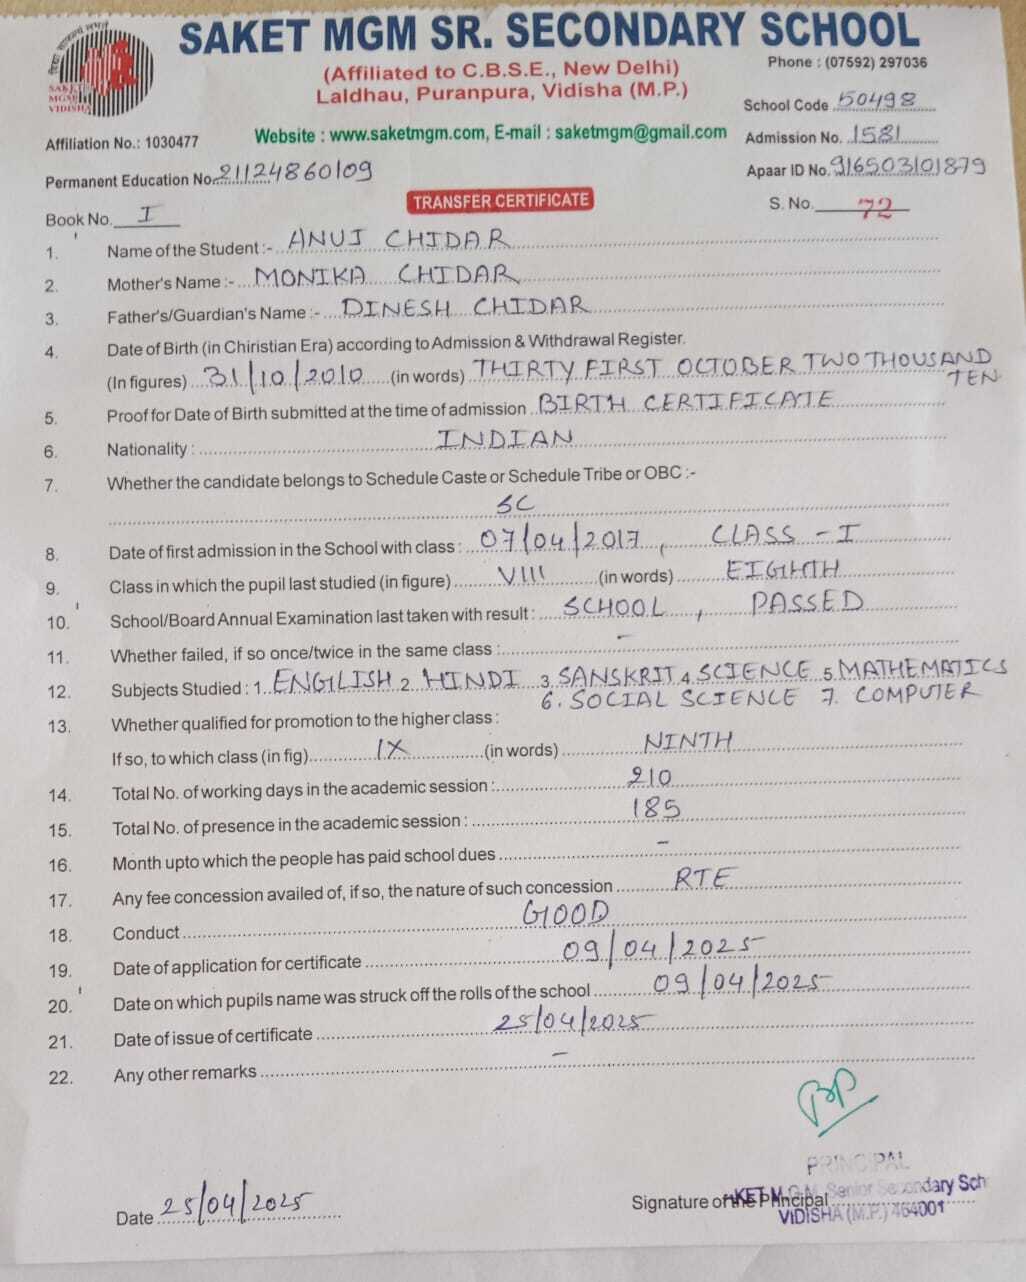 SAKET MGM SR. SECONDARY SCHOOL
(Affiliated to C.B.S.E., New Delhi)
Phone : (07592) 297036
Laldhau, Puranpura, Vidisha (M.P.)
SAKET
MGM
VIDISHA
School Code 50498
Affiliation No.: 1030477
Website : www.saketmgm.com, E-mail : saketmgm@gmail.com
Admission No. 1581
Permanent Education No. 21124860109
Apaar ID No. 916503101879
Book No. I
TRANSFER CERTIFICATE
S. No. 72
1. Name of the Student :- ANUJ CHIDAR
2. Mother's Name :- MONIKA CHIDAR
3. Father's/Guardian's Name :- DINESH CHIDAR
4. Date of Birth (in Chiristian Era) according to Admission & Withdrawal Register.
(In figures) 31/10/2010 (in words) THIRTY FIRST OCTOBER TWO THOUSAND
TEN
5. Proof for Date of Birth submitted at the time of admission BIRTH CERTIFICATE
6. Nationality : INDIAN
7. Whether the candidate belongs to Schedule Caste or Schedule Tribe or OBC :-
SC
8. Date of first admission in the School with class : 07/04/2017, CLASS - I
9. Class in which the pupil last studied (in figure) VIII (in words) EIGHTH
10. School/Board Annual Examination last taken with result : SCHOOL, PASSED
11. Whether failed, if so once/twice in the same class : -
12. Subjects Studied : 1. ENGLISH 2. HINDI 3. SANSKRIT 4. SCIENCE 5. MATHEMATICS
6. SOCIAL SCIENCE 7. COMPUTER
13. Whether qualified for promotion to the higher class :
If so, to which class (in fig) IX (in words) NINTH
14. Total No. of working days in the academic session : 210
15. Total No. of presence in the academic session : 185
16. Month upto which the people has paid school dues -
17. Any fee concession availed of, if so, the nature of such concession RTE
18. Conduct GOOD
19. Date of application for certificate 09/04/2025
20. Date on which pupils name was struck off the rolls of the school 09/04/2025
21. Date of issue of certificate 25/04/2025
22. Any other remarks -
PRINCIPAL
Date 25/04/2025
Signature of the Principal
KET M.G.M. Senior Secondary Sch
VIDISHA (M.P.) 464001